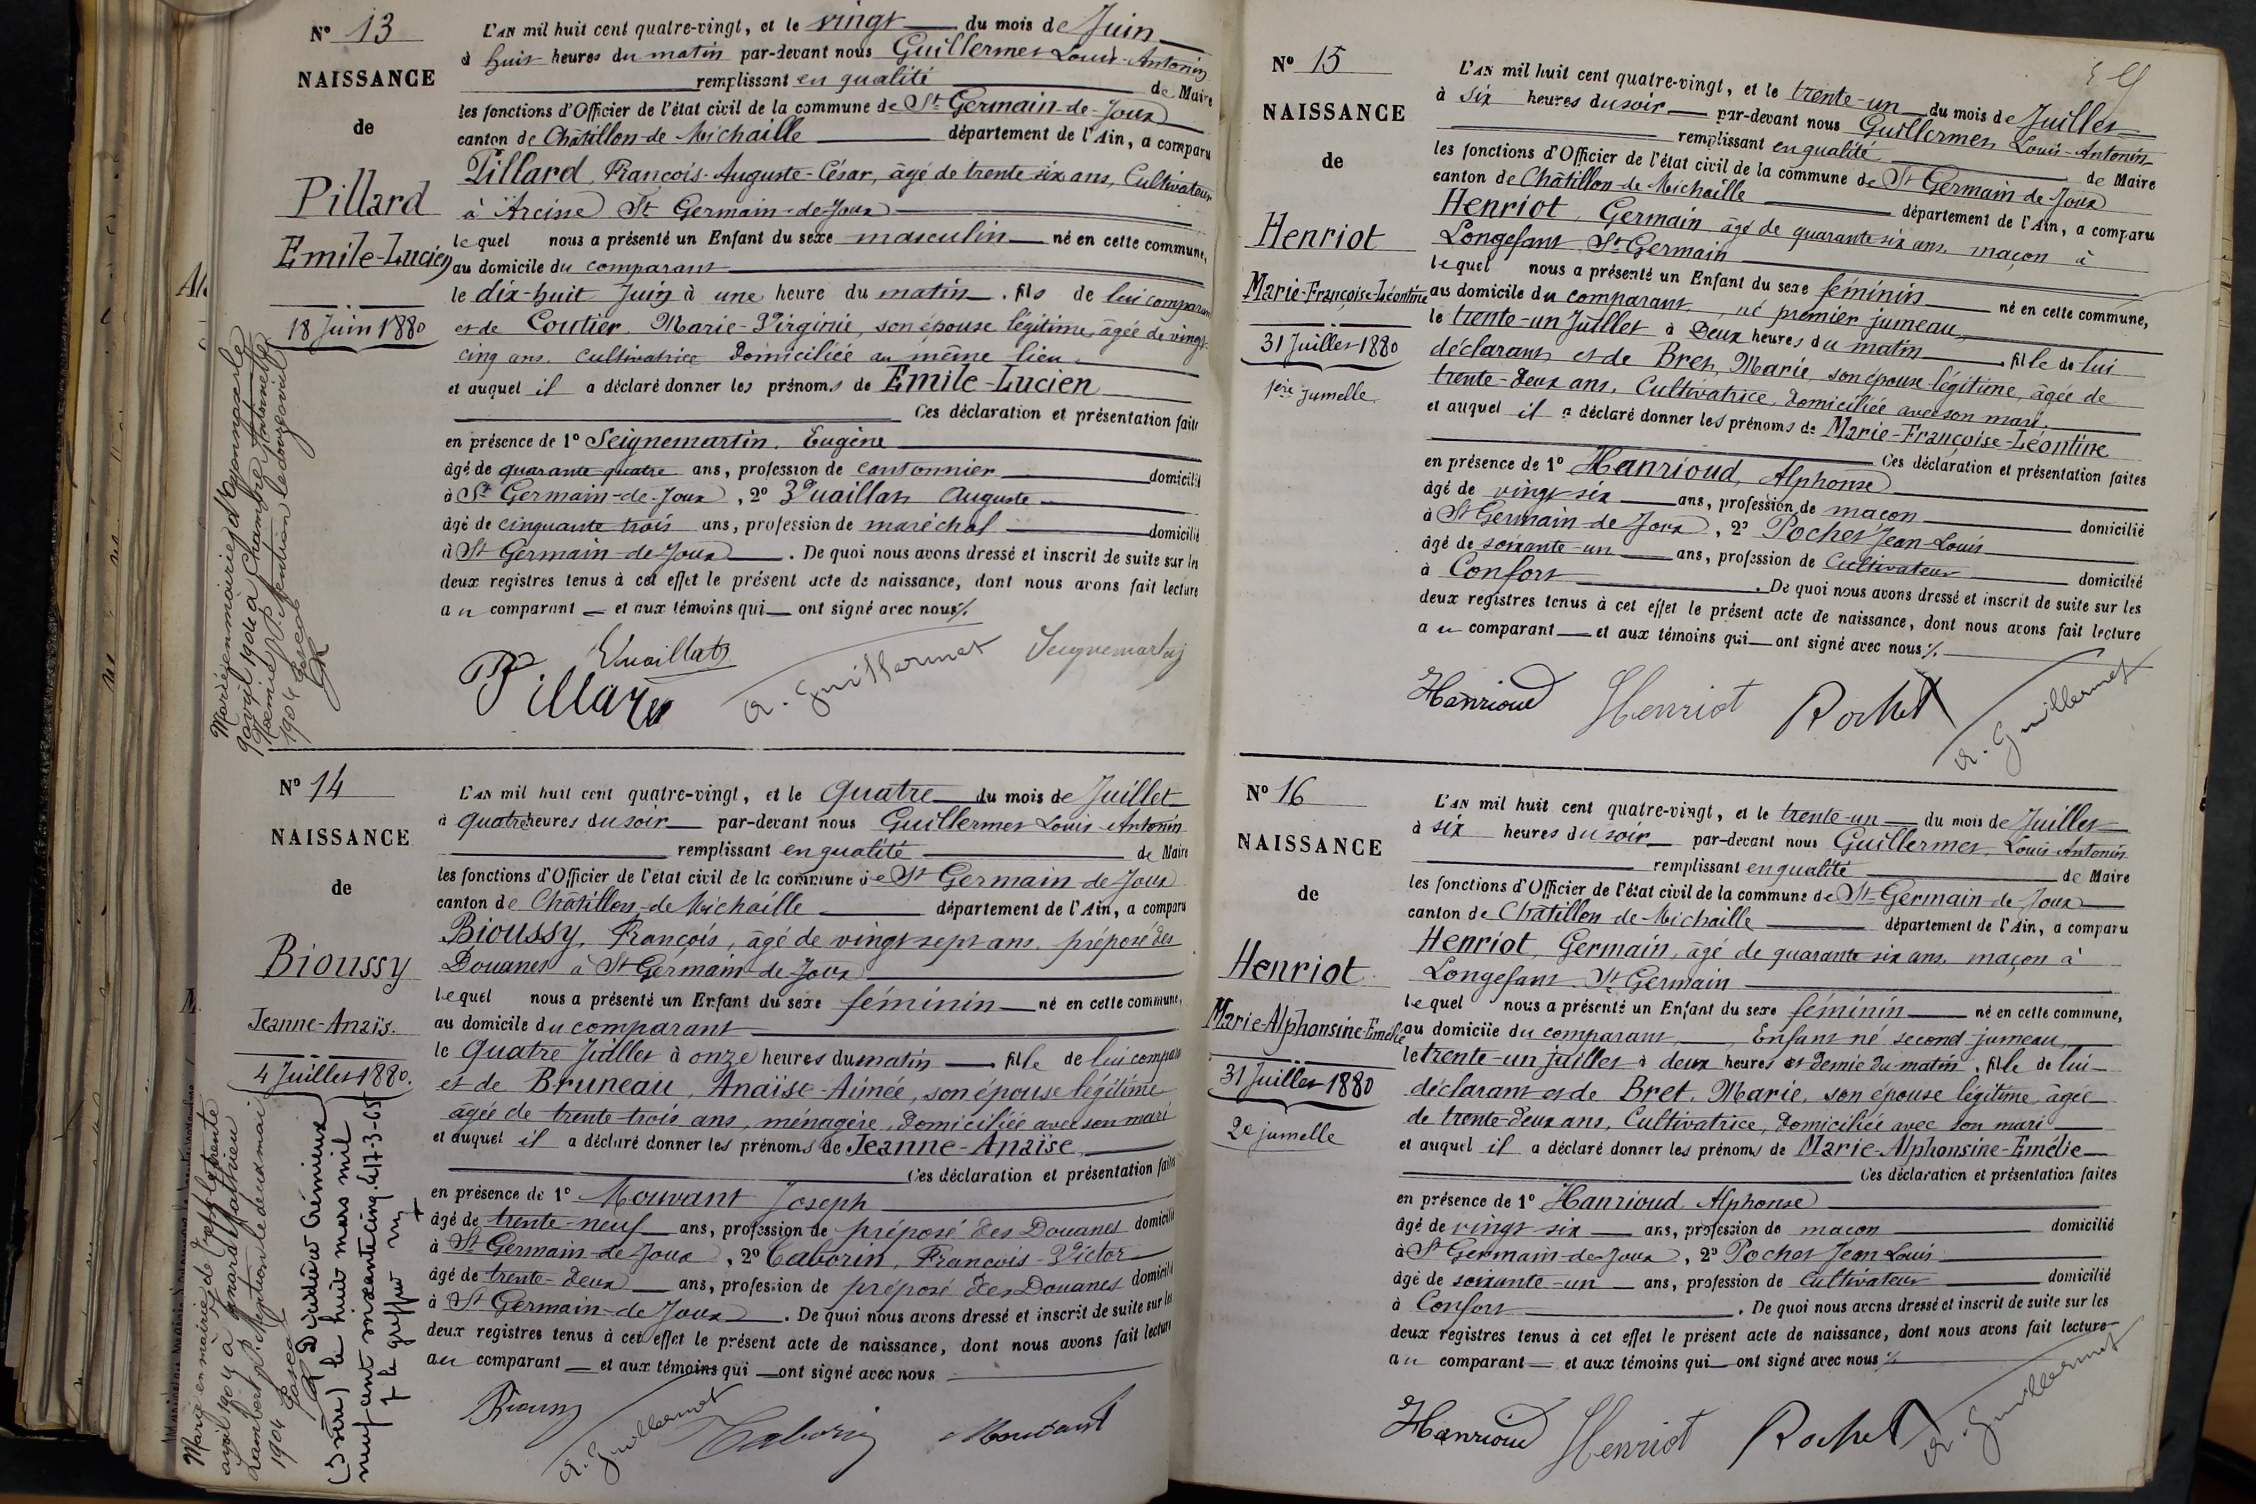 N° 13
NAISSANCE
de
Pillard
Emile-Lucien
18 Juin 1880
L'AN mil huit cent quatre-vingt, et le vingt du mois de Juin
à huit heures du matin par-devant nous Guillermet Louis-Antonin
remplissant en qualité de Maire
les fonctions d'Officier de l'état civil de la commune de St Germain-de-Joux
canton de Châtillon-de-Michaille département de l'Ain, a comparu
Pillard, François-Auguste-César, âgé de trente-six ans, Cultivateur
à St Germain-de-Joux
lequel nous a présenté un Enfant du sexe masculin né en cette commune,
au domicile du comparant
le dix-huit Juin à une heure du matin, fils de lui comparant
et de Coutier, Marie-Virginie, son épouse légitime, âgée de vingt-
cinq ans, cultivatrice domiciliée au même lieu,
et auquel il a déclaré donner les prénoms de Emile-Lucien
Ces déclaration et présentation faites
en présence de 1° Seignemartin, Eugène
âgé de quarante-quatre ans, profession de cantonnier domicilié
à St Germain-de-Joux, 2° Vuaillat Auguste
âgé de cinquante-trois ans, profession de maréchal domicilié
à St Germain-de-Joux. De quoi nous avons dressé et inscrit de suite sur les
deux registres tenus à cet effet le présent acte de naissance, dont nous avons fait lecture
au comparant et aux témoins qui ont signé avec nous
Vuaillat
Pillard
A. Guillermet
Seignemartin
Marié en mairie d'Oyonnax le
9 avril 1904 à Chambre Antoinette
Noémie. P. Mention le douze avril
1904
N° 14
NAISSANCE
de
Bioussy
Jeanne-Anaïs.
4 Juillet 1880.
L'AN mil huit cent quatre-vingt, et le quatre du mois de Juillet
à quatre heures du soir par-devant nous Guillermet Louis-Antonin
remplissant en qualité de Maire
les fonctions d'Officier de l'état civil de la commune de St Germain-de-Joux
canton de Châtillon-de-Michaille département de l'Ain, a comparu
Bioussy, François, âgé de vingt-sept ans, préposé des
Douanes à St Germain-de-Joux
lequel nous a présenté un Enfant du sexe féminin né en cette commune,
au domicile du comparant
le quatre Juillet à onze heures du matin, fille de lui comparant
et de Bruneau, Anaïse-Aimée, son épouse légitime
âgée de trente-trois ans, ménagère, domiciliée avec son mari
et auquel il a déclaré donner les prénoms de Jeanne-Anaïse,
Ces déclaration et présentation faites
en présence de 1° Mouvant Joseph
âgé de trente-neuf ans, profession de préposé des Douanes domicilié
à St Germain-de-Joux, 2° Caborin, François-Victor
âgé de trente-deux ans, profession de préposé des Douanes domicilié
à St Germain-de-Joux. De quoi nous avons dressé et inscrit de suite sur les
deux registres tenus à cet effet le présent acte de naissance, dont nous avons fait lecture
au comparant et aux témoins qui ont signé avec nous
Bioussy
A. Guillermet
Caborin
Mouvant
Marié en mairie de le trente
avril 1904 à Mathieu
Lambert. P. Mention le deux mai
1904
le huit mars mil
neuf cent soixante cinq. le 17-3-65
le greffier
N° 15
NAISSANCE
de
Henriot
Marie-Françoise-Léontine
31 Juillet 1880
1ère jumelle
L'AN mil huit cent quatre-vingt, et le trente-un du mois de Juillet
à six heures du soir par-devant nous Guillermet Louis-Antonin
remplissant en qualité de Maire
les fonctions d'Officier de l'état civil de la commune de St Germain de Joux
canton de Châtillon-de-Michaille département de l'Ain, a comparu
Henriot, Germain, âgé de quarante-six ans, maçon à
Longefant St Germain
lequel nous a présenté un Enfant du sexe féminin né en cette commune,
au domicile du comparant, né premier jumeau,
le trente-un Juillet à deux heures du matin, fille de lui
déclarant et de Bret, Marie, son épouse légitime, âgée de
trente-deux ans, Cultivatrice, domiciliée avec son mari.
et auquel il a déclaré donner les prénoms de Marie-Françoise-Léontine
Ces déclaration et présentation faites
en présence de 1° Hanrioud, Alphonse
âgé de vingt-six ans, profession de maçon domicilié
à St Germain-de-Joux, 2° Pochet Jean-Louis
âgé de soixante-un ans, profession de Cultivateur domicilié
à Confort. De quoi nous avons dressé et inscrit de suite sur les
deux registres tenus à cet effet le présent acte de naissance, dont nous avons fait lecture
au comparant et aux témoins qui ont signé avec nous
Hanrioud
Henriot
Pochet
A. Guillermet
N° 16
NAISSANCE
de
Henriot
Marie-Alphonsine-Emélie
31 Juillet 1880
2e jumelle
L'AN mil huit cent quatre-vingt, et le trente-un du mois de Juillet
à six heures du soir par-devant nous Guillermet, Louis-Antonin
remplissant en qualité de Maire
les fonctions d'Officier de l'état civil de la commune de St Germain de Joux
canton de Châtillon de Michaille département de l'Ain, a comparu
Henriot, Germain, âgé de quarante-six ans, maçon à
Longefant St Germain
lequel nous a présenté un Enfant du sexe féminin né en cette commune,
au domicile du comparant, Enfant né second jumeau,
le trente-un juillet à deux heures et demie du matin, fille de lui
déclarant et de Bret, Marie, son épouse légitime, âgée
de trente-deux ans, Cultivatrice, domiciliée avec son mari
et auquel il a déclaré donner les prénoms de Marie-Alphonsine-Emélie
Ces déclaration et présentation faites
en présence de 1° Hanrioud, Alphonse
âgé de vingt-six ans, profession de maçon domicilié
à St Germain-de-Joux, 2° Pochet Jean Louis
âgé de soixante-un ans, profession de Cultivateur domicilié
à Confort. De quoi nous avons dressé et inscrit de suite sur les
deux registres tenus à cet effet le présent acte de naissance, dont nous avons fait lecture
au comparant et aux témoins qui ont signé avec nous
Hanrioud
Henriot
Pochet
A. Guillermet